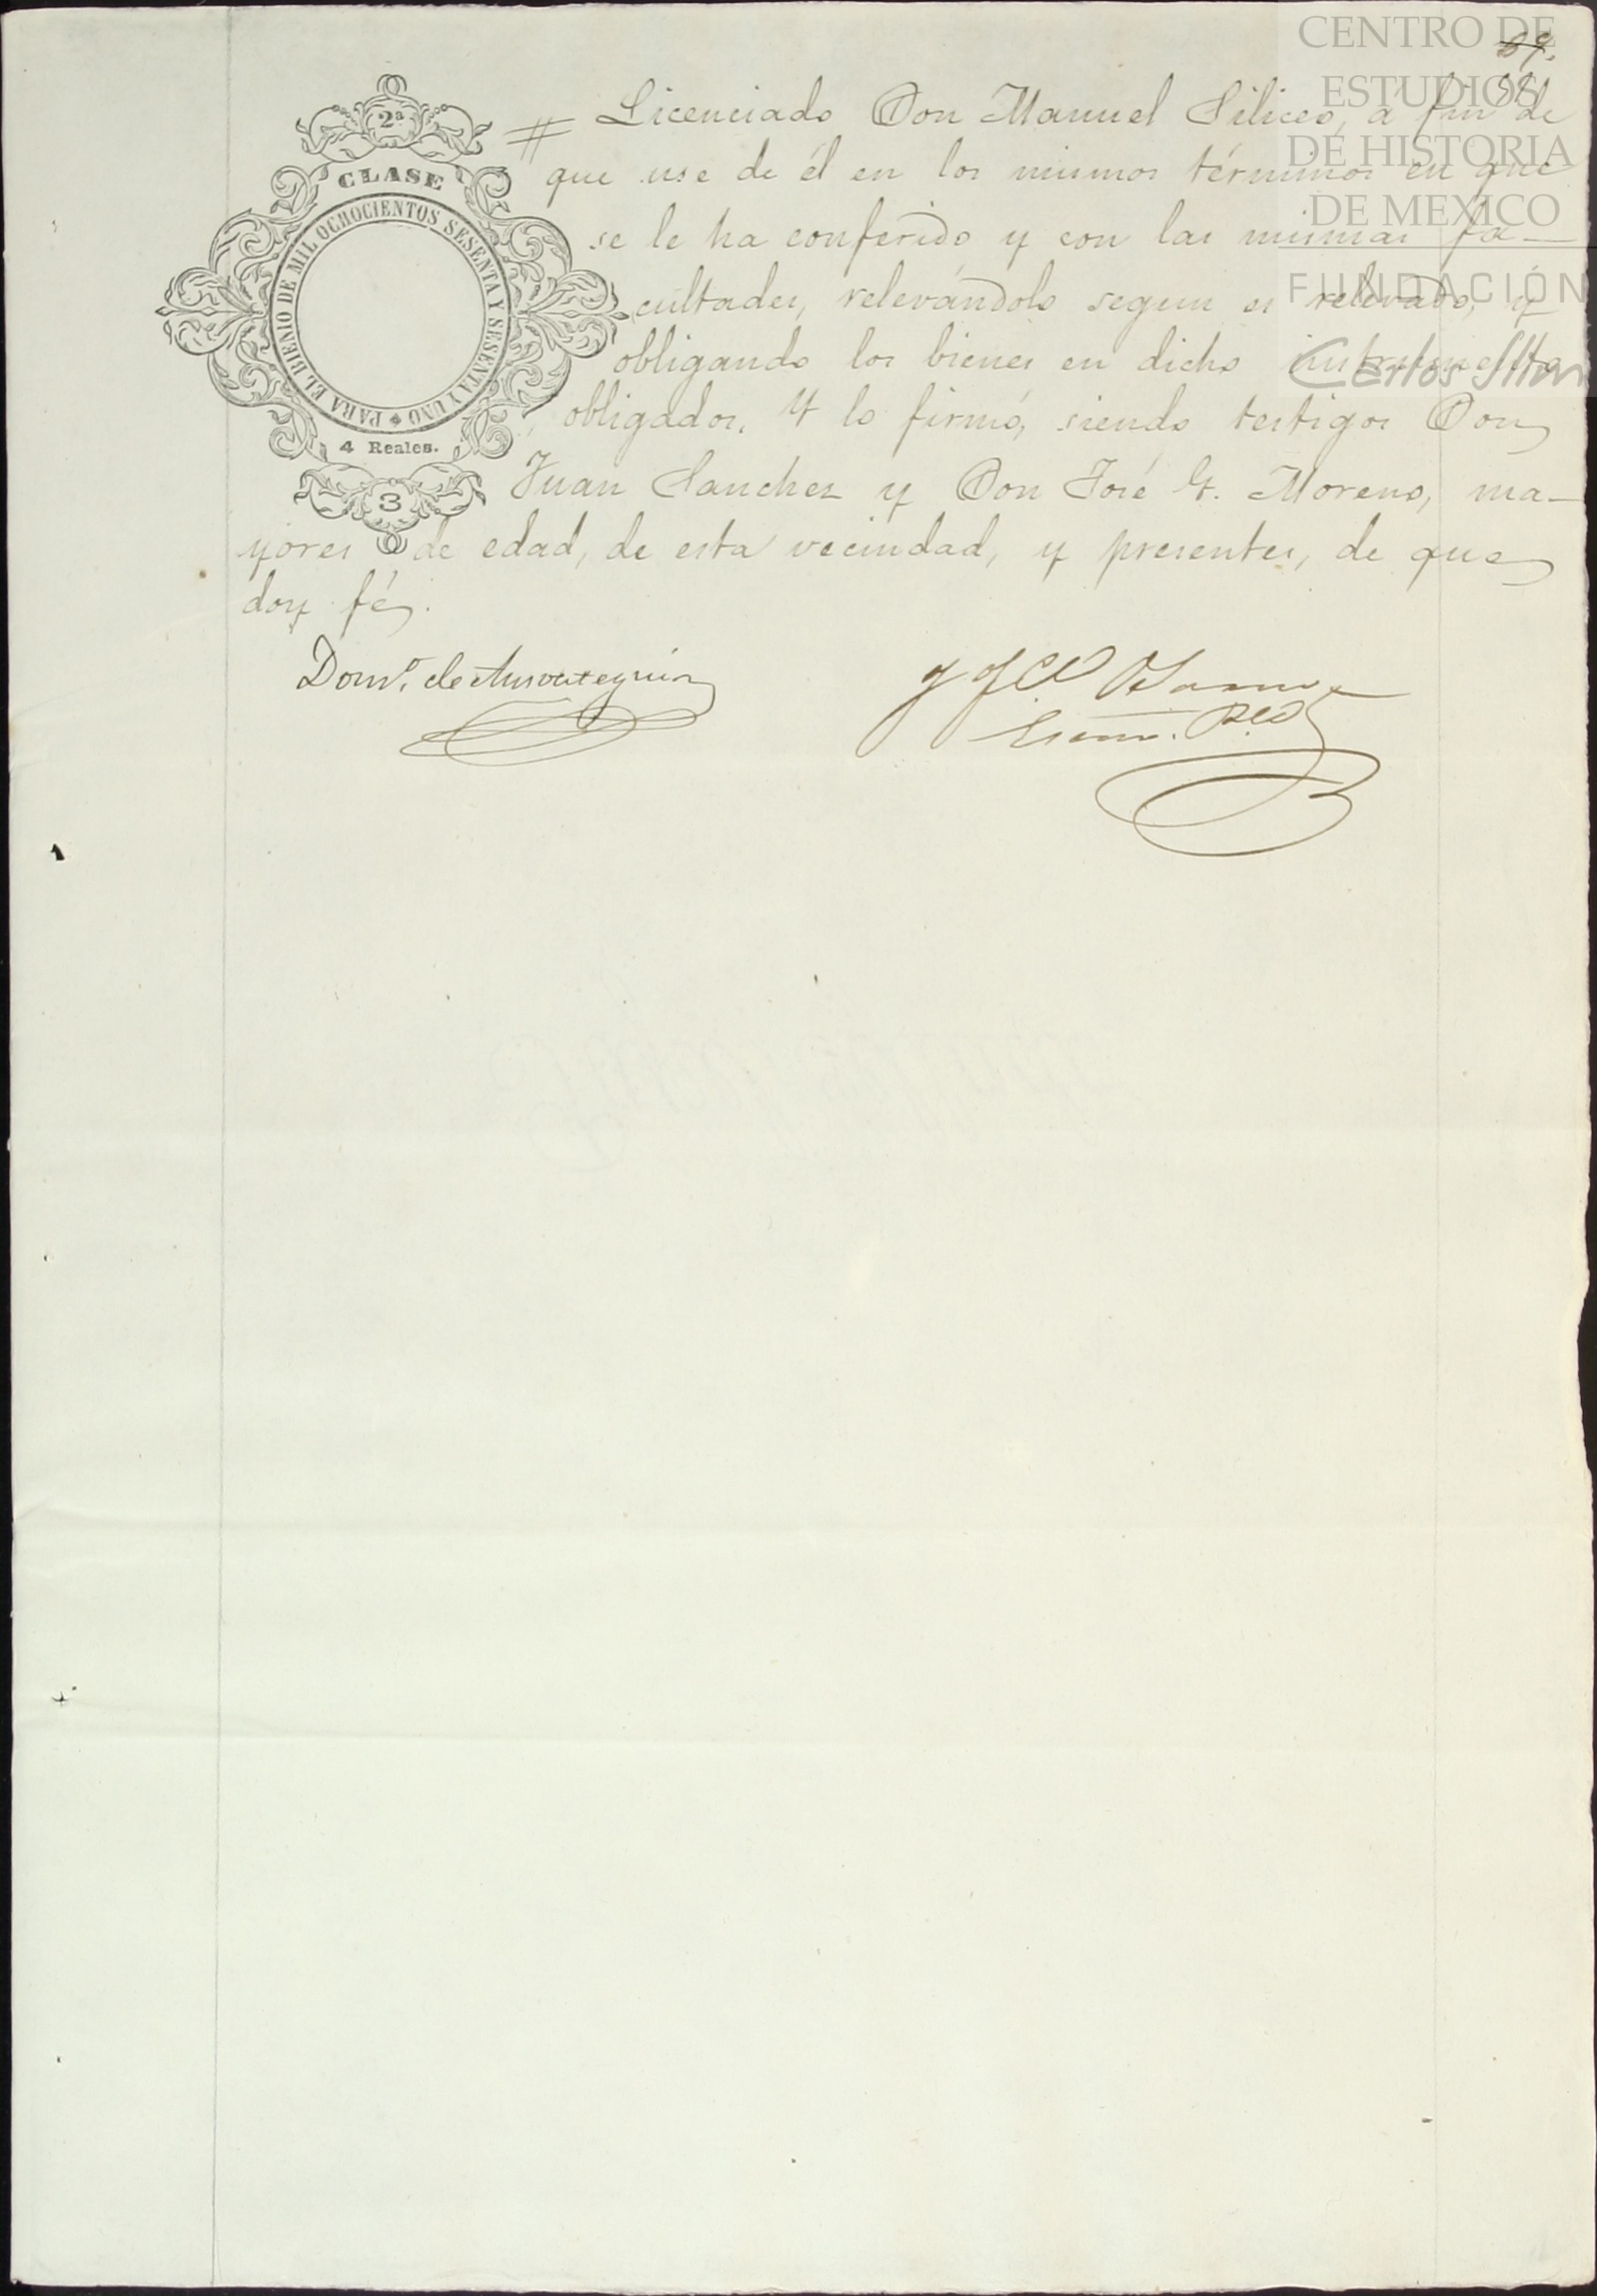 CENTRO DE
ESTUDIOS
DE HISTORIA
DE MEXICO
FUNDACIÓN
Carlos Slim
2ª
CLASE
PARA EL BIENIO DE MIL OCHOCIENTOS SESENTA Y SESENTA Y UNO
4 Reales.
3
Licenciado Don Manuel Siliceo, á fin de
que use de él en los mismos términos en que
se le ha conferido y con las mismas fa-
cultades, relevándolo segun es relevado, y
obligando los bienes en dicho instrumento
obligados. Y lo firmó, siendo testigos Don
Juan Sanchez y Don José G. Moreno, ma-
yores de edad, de esta vecindad, y presentes, de que
doy fé.
Dom.º de Ansoategui